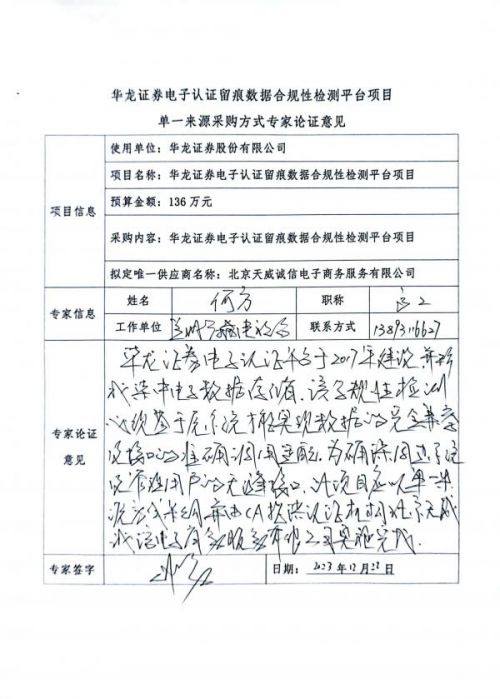 华龙证券电子认证留痕数据合规性检测平台项目
单一来源采购方式专家论证意见
项目信息
使用单位：华龙证券股份有限公司
项目名称：华龙证券电子认证留痕数据合规性检测平台项目
预算金额：136万元
采购内容：华龙证券电子认证留痕数据合规性检测平台项目
拟定唯一供应商名称：北京天威诚信电子商务服务有限公司
专家信息
姓名 何方 职称 高工
工作单位 联系方式 13893116627
专家论证
意见
华龙证券电子认证平台于2017年建设，并形
成集中电子数据存储，该合规性检测
必须基于原系统才能实现数据的完全兼容
及接口的准确调用匹配，为确保
用户的无缝接口，此项目应以单一来
源方式采购，并由CA 认证机构北京天威
诚信电子商务服务有限公司实施完成。
专家签字
日期：2023年12月22日